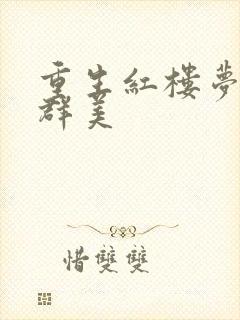 重生紅樓夢
群美
惜雙雙